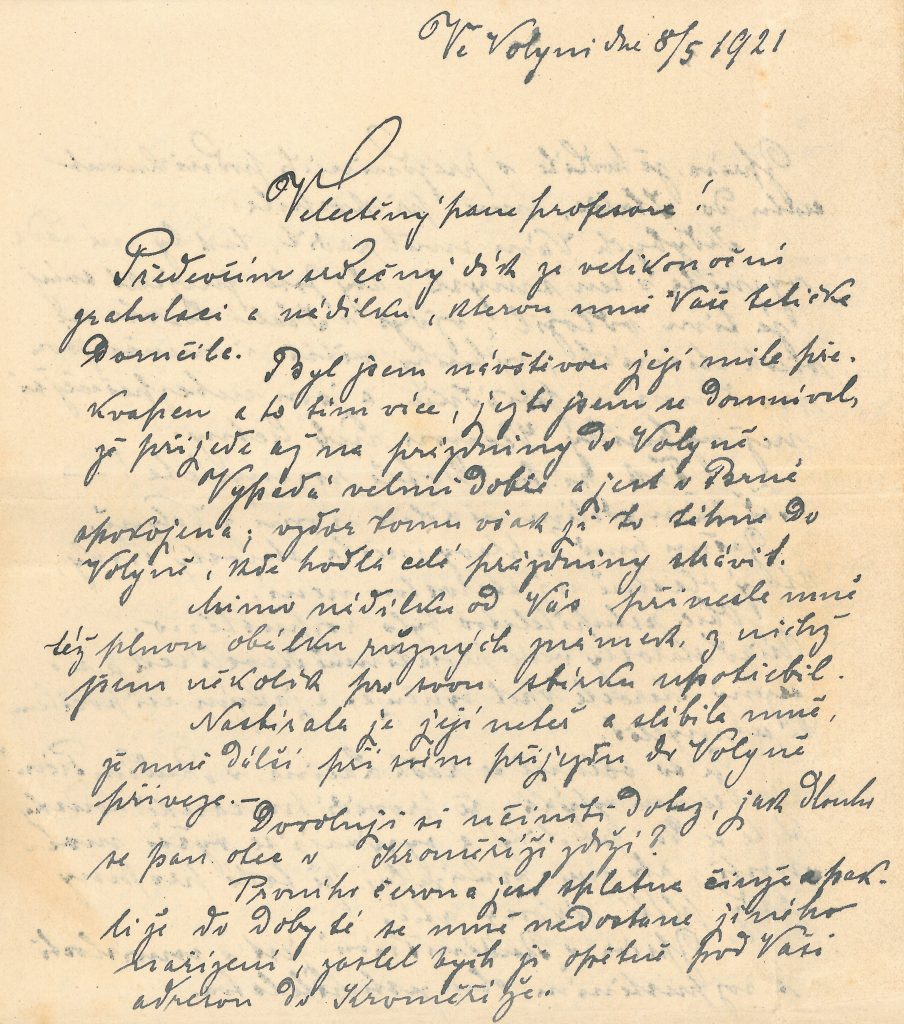 Ve Volyni dne 8/5 1921
Velectěný pane profesore!
Především srdečný dík ze velikonoční
gratulaci a nádilku, kterou mně Vaše tetička
Doručila.
Byl jsem návštěvou její mile pře-
kvapen a to tím více, ježto jsem se domníval,
že přijede až na prázdniny do Volyně.
Vypadá velmi dobře a jest v Brně
spokojena; vzdor tomu však ji to táhne do
Volyně, kde hodlá celé prázdniny strávit.
Mimo nádilku od Vás přinesla mně
též plnou obálku různých známek, z nichž
jsem několik pro svou sbírku upotřebil.
Nasbírala je její neteř a slíbila mně,
že mně další při svém příjezdu do Volyně
přiveze.-
Dovoluji si učiniti dotaz, jak dlouho
se pan otec v Kroměříži zdrží?
Prvního června jest splatna činže a pak-
liže do doby té se mně nedostane jiného
nařízení, zaslal bych ji opětně pod Vaší
adresou do Kroměříže.-